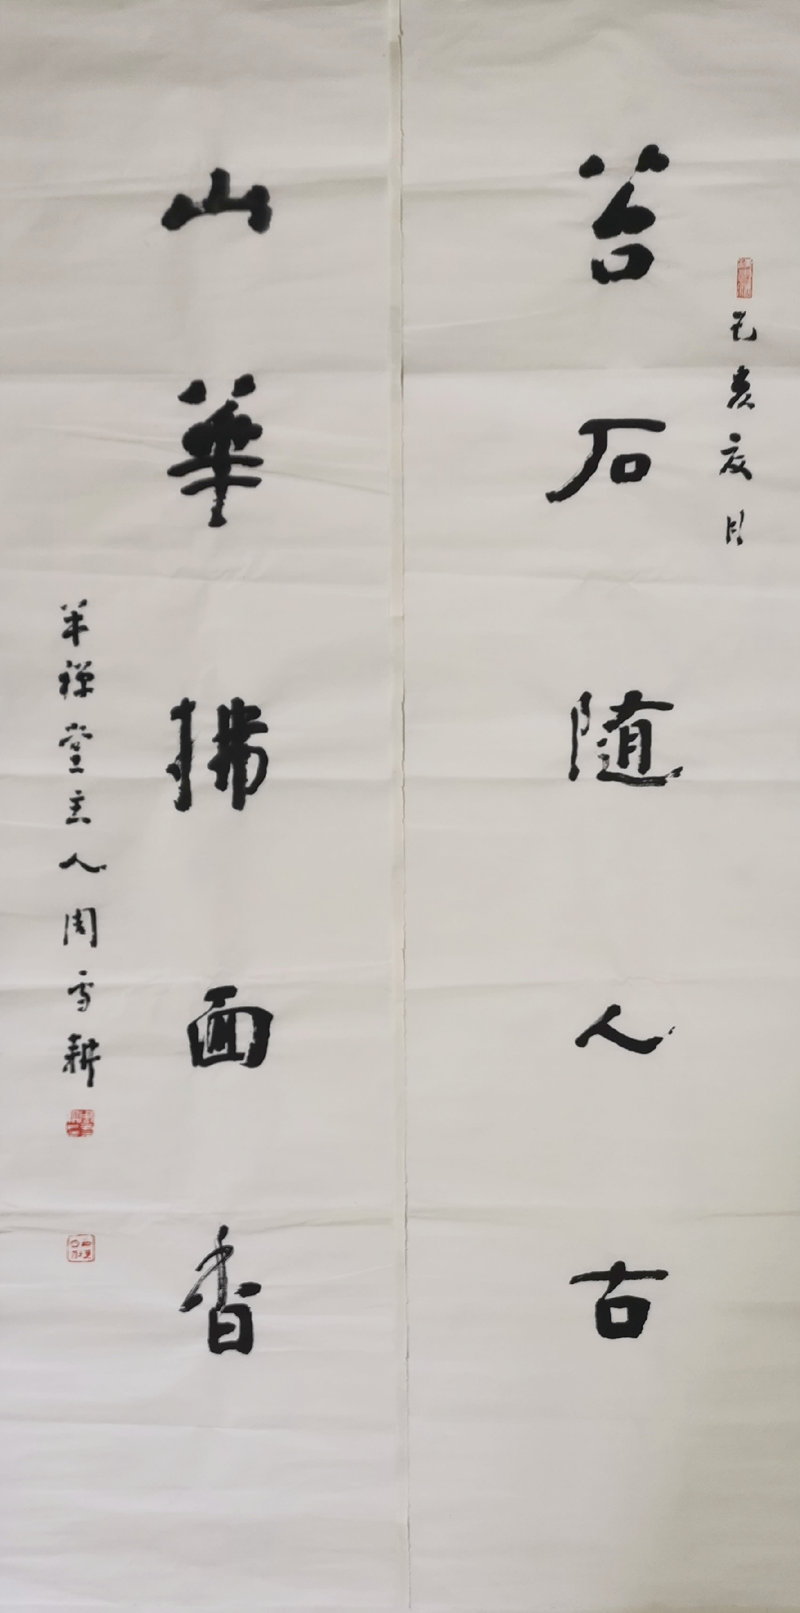 己亥夏月
苔石随人古
山華拂面香
半禅堂主人周雪耕